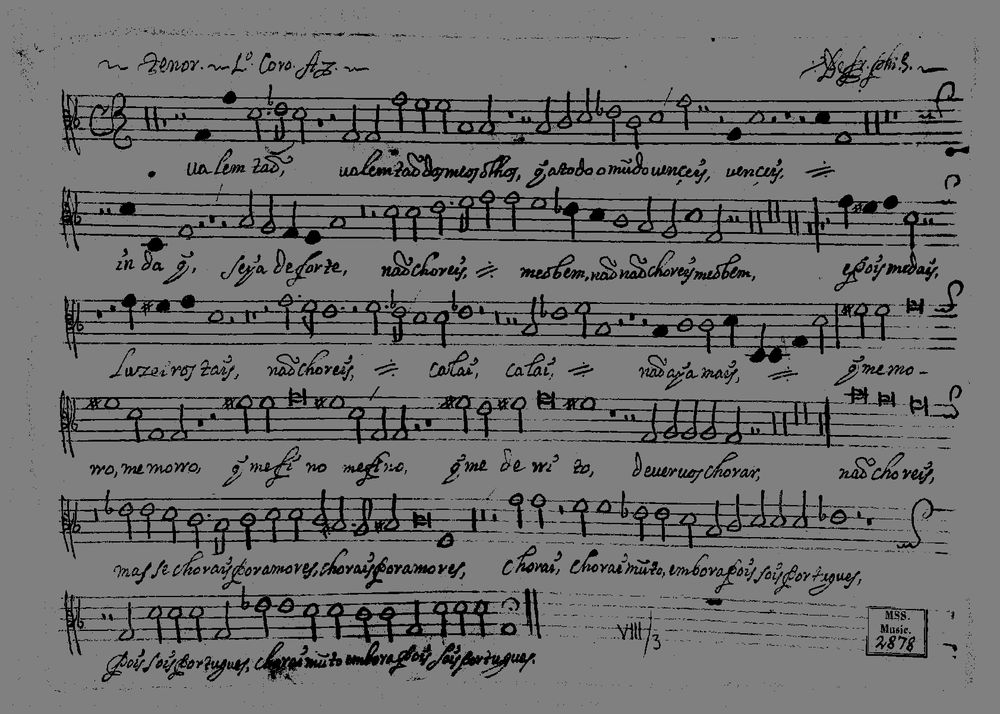 Tenor. L.º Coro. Az.
valentaõ, valentaõ dos meos olhos, q̃ a todo o mũdo venceis, venceis,
inda q̃, seja de sorte, naõ choreis, meo bem, naõ naõ choreis meo bem, e pois me dais,
Luzeiros tais, naõ choreis, calai, calai, naõ aja mais, q̃ me mo-
rro, me morro, q̃ me fi no me fino, q̃ me de rri to, de vervos chorar, naõ choreis,
mas se chorais por amores, chorais por amores, chorai, chorai mũto, embora pois sois portugues,
pois sois portugues, chorai mũto embora pois sois portugues.
VIII/3
MSS.
Music.
2878